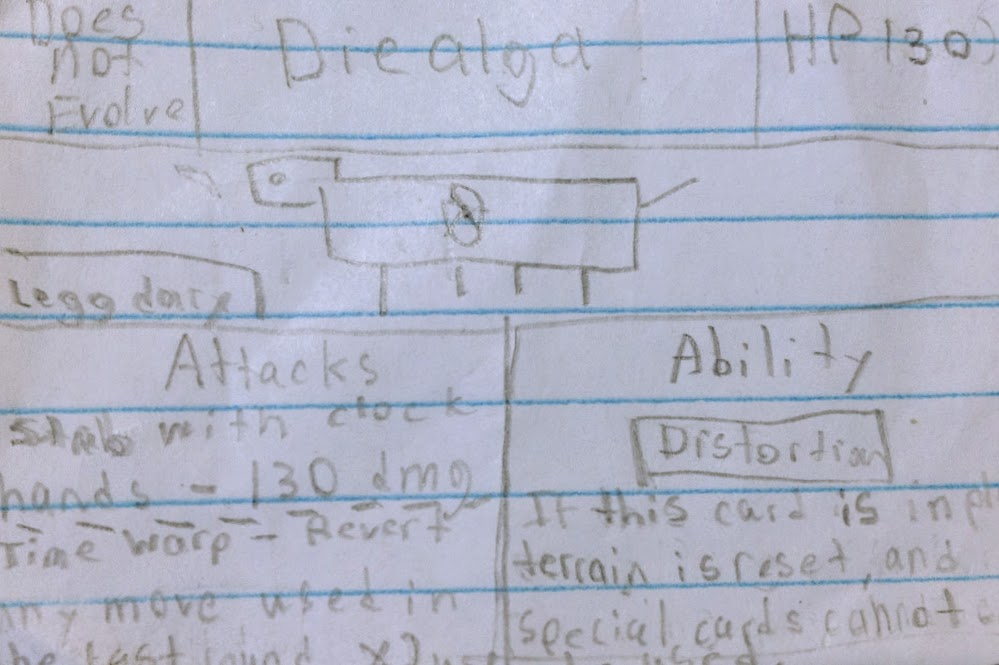 Does
not
Evolve
Diealga
HP 130
Leggdary
Attacks
Stab with clock
hands - 130 dmg
Time Warp - Revert
any move used in
the last round x2
Ability
Distortion
If this card is in
terrain is reset, and
special cards cannot
be used.